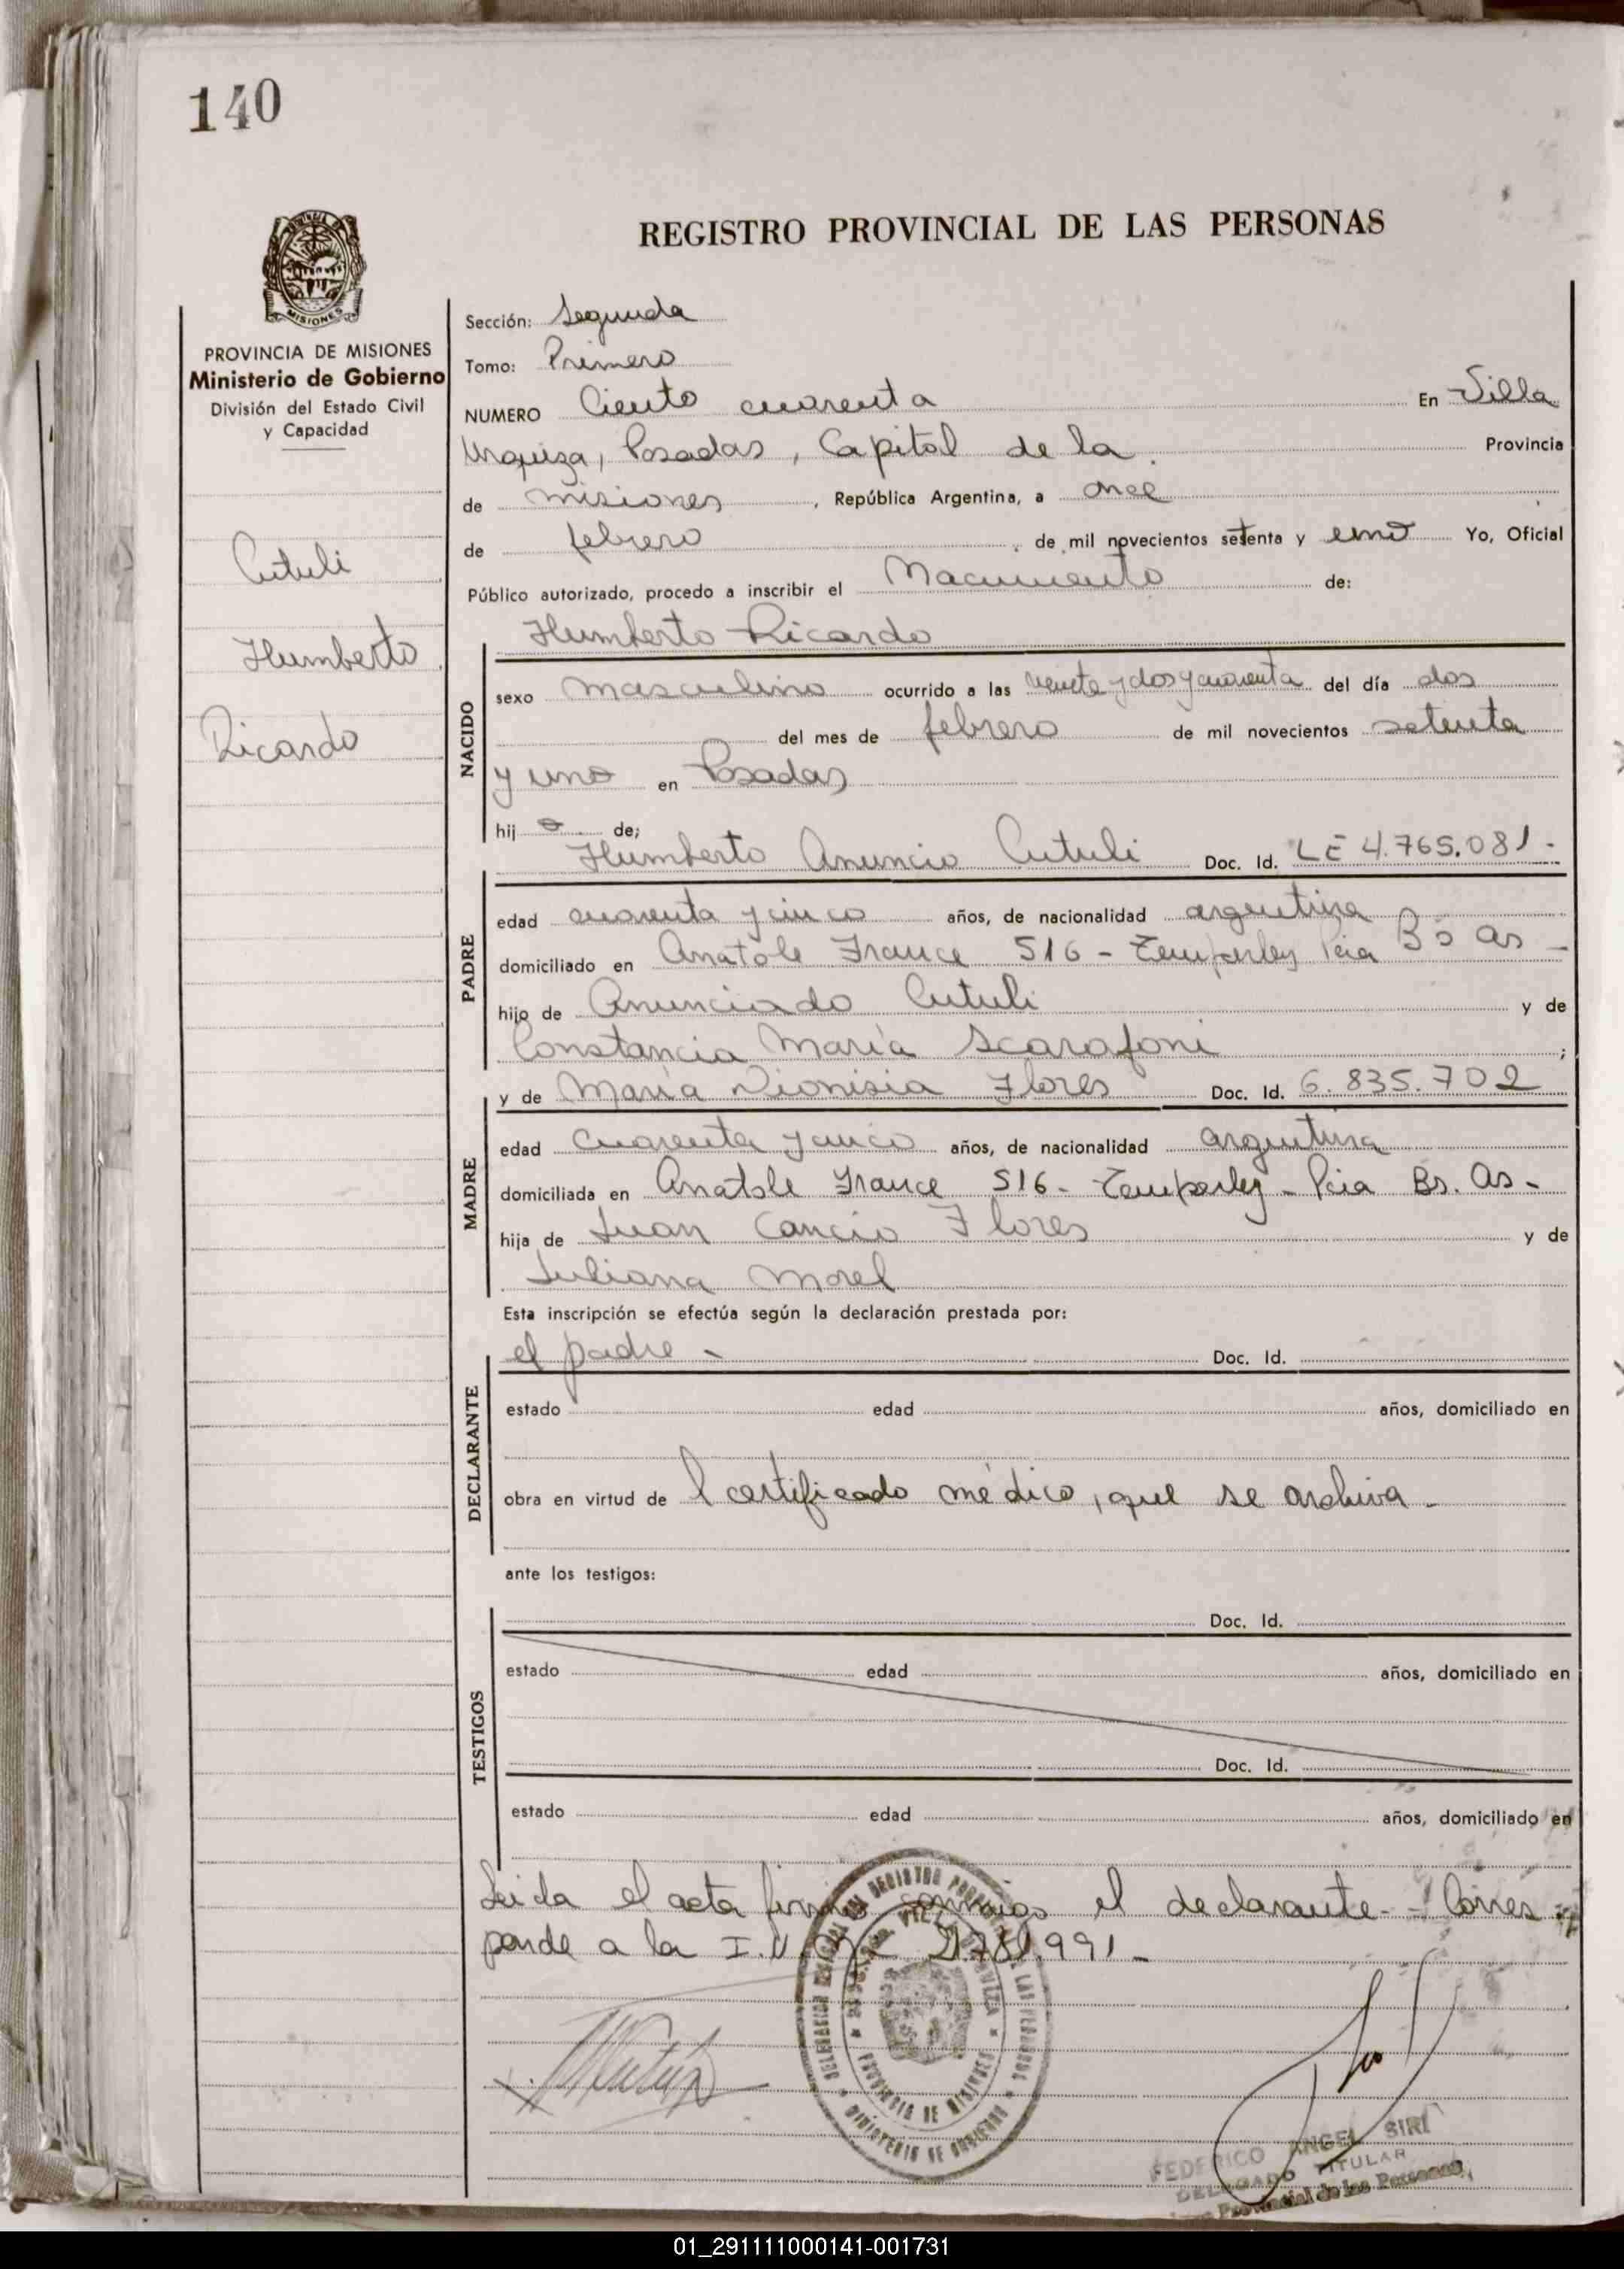 140
REGISTRO PROVINCIAL DE LAS PERSONAS
MISIONES
PROVINCIA DE MISIONES
Ministerio de Gobierno
División del Estado Civil
y Capacidad
Cutuli
Humberto
Ricardo
Sección: Segunda
Tomo: Primero
NUMERO Ciento cuarenta En Villa
Urquiza, Posadas, Capital de la. Provincia
de misiones, República Argentina, a once
de febrero de mil novecientos setenta y uno Yo, Oficial
Público autorizado, procedo a inscribir el Nacimiento de:
Humberto Ricardo
NACIDO
sexo masculino ocurrido a las veinte y dos y cuarenta del día dos
del mes de febrero de mil novecientos setenta
y uno en Posadas
hij o de;
Humberto Anuncio Cutuli Doc. Id. LE 4.765.081.-
PADRE
edad cuarenta y cinco años, de nacionalidad argentina
domiciliado en Anatole France 516 - Temperley Pcia Bs As -
hijo de Anunciado Cutuli y de
Constancia María Scarafoni ;
y de María Dionisia Flores Doc. Id. 6.835.702
MADRE
edad cuarenta y cinco años, de nacionalidad argentina
domiciliada en Anatole France 516 - Temperley - Pcia Bs. As -
hija de Juan Cancio Flores y de
Juliana Morel
Esta inscripción se efectúa según la declaración prestada por:
el padre - Doc. Id.
DECLARANTE
estado edad años, domiciliado en
obra en virtud de l certificado médico, que se archiva -
ante los testigos:
Doc. Id.
TESTIGOS
estado edad años, domiciliado en
Doc. Id.
estado edad años, domiciliado en
Leida el acta firma conmigo el declarante - Corres
ponde a la 991 -
PROVINCIA DE MISIONES
MINISTERIO DE GOBIERNO
FEDERICO ANGEL SIRI
DELEGADO TITULAR
Provincial de las Personas
01_291111000141-001731